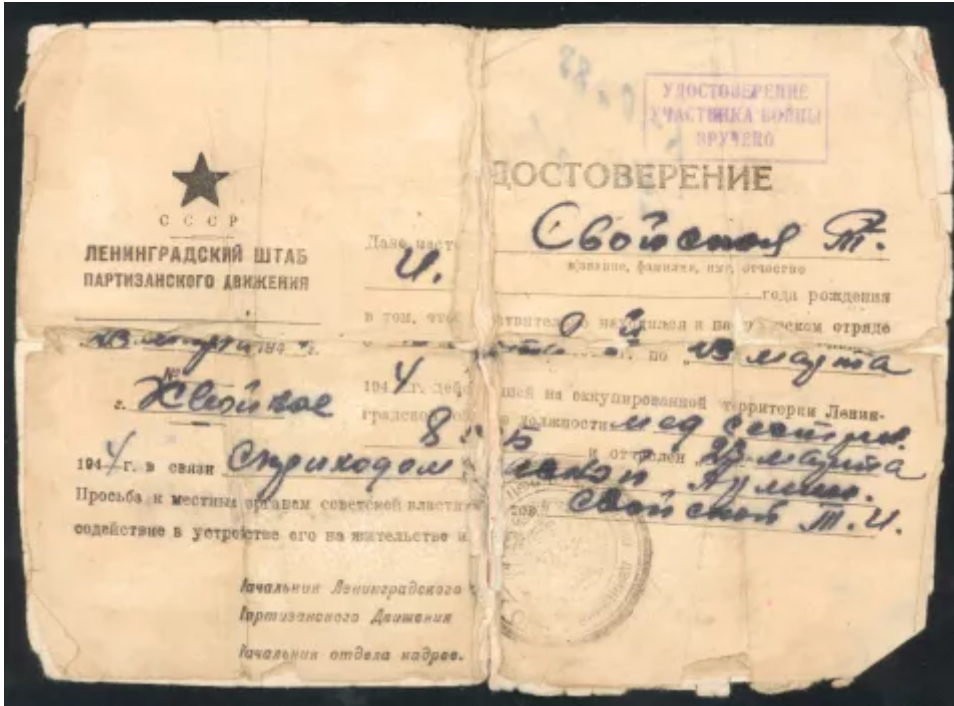 УДОСТОВЕРЕНИЕ
УЧАСТНИКА ВОЙНЫ
ВРУЧЕНО
СССР
ЛЕНИНГРАДСКИЙ ШТАБ
ПАРТИЗАНСКОГО ДВИЖЕНИЯ
23 марта 194 г.
№
г. Хвойное
ДОСТОВЕРЕНИЕ
Дано наст Свойской Т.
звание, фамилия, имя, отчество
И. года рождения
в том, что находился в отряде
по „23 марта
194 4 г. на оккупированной территории Ленин-
градской должности мед сестры.
и отправлен „23 марта
194 4 г. в связи С приходом Армии.
Просьба к местным органам советской власти тов. Свойской Т. И.
содействие в устройстве его на жительство и
Начальник Ленинградского
Партизанского Движения
Начальник отдела кадров.